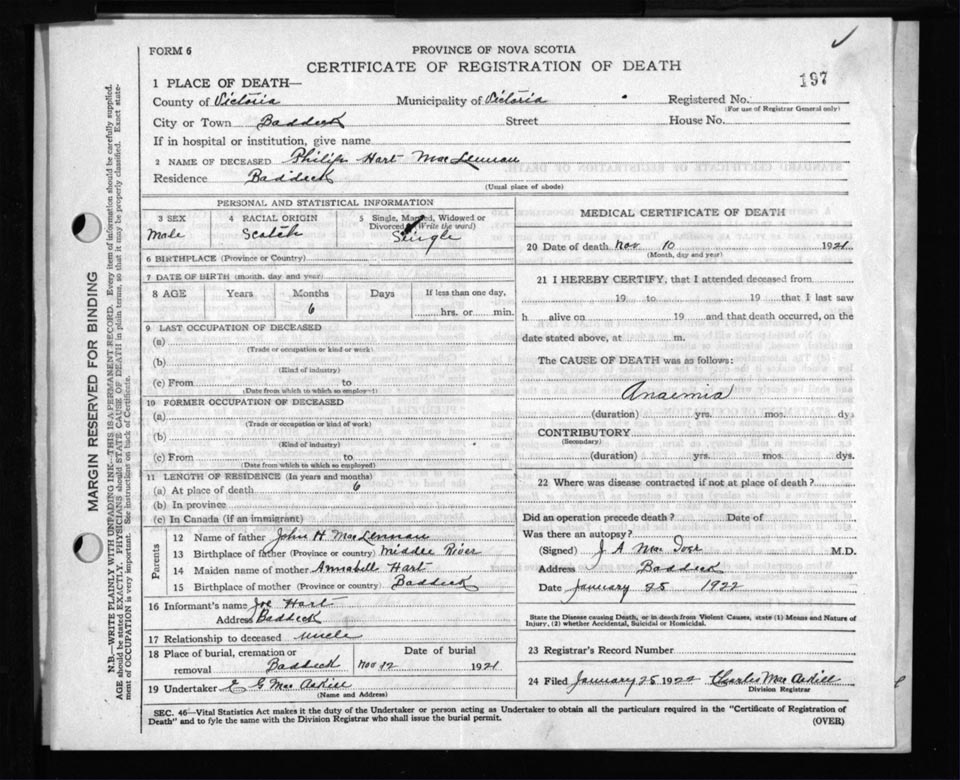 FORM 6
PROVINCE OF NOVA SCOTIA
CERTIFICATE OF REGISTRATION OF DEATH
197
1 PLACE OF DEATH—
County of Victoria Municipality of Victoria Registered No.
(For use of Registrar General only)
City or Town Baddeck Street House No.
If in hospital or institution, give name
2 NAME OF DECEASED Philip Hart MacLennan
Residence Baddeck
(Usual place of abode)
PERSONAL AND STATISTICAL INFORMATION
3 SEX 4 RACIAL ORIGIN 5 Single, Married, Widowed or
Divorced (Write the word)
Male Scotch Single
6 BIRTHPLACE (Province or Country)
7 DATE OF BIRTH (month, day and year)
8 AGE Years Months Days If less than one day,
6 hrs. or min.
9 LAST OCCUPATION OF DECEASED
(a)
(Trade or occupation or kind or work)
(b)
(Kind of industry)
(c) From to
(Date from which to which so employed)
10 FORMER OCCUPATION OF DECEASED
(a)
(Trade or occupation or kind of work)
(b)
(Kind of industry)
(c) From to
(Date from which to which so employed)
11 LENGTH OF RESIDENCE (In years and months)
(a) At place of death 6
(b) In province
(c) In Canada (if an immigrant)
Parents
12 Name of father John H MacLennan
13 Birthplace of father (Province or country) Middle River
14 Maiden name of mother Annabell Hart
15 Birthplace of mother (Province or country) Baddeck
16 Informant's name Joe Hart
Address Baddeck
17 Relationship to deceased uncle
18 Place of burial, cremation or removal Baddeck
Date of burial Nov 12 1921
19 Undertaker E G MacAskill
(Name and Address)
MEDICAL CERTIFICATE OF DEATH
20 Date of death Nov 10 1921
(Month, day and year)
21 I HEREBY CERTIFY, that I attended deceased from
19 to 19 that I last saw
h alive on 19 and that death occurred, on the
date stated above, at m.
The CAUSE OF DEATH was as follows:
Anaemia
(duration) yrs. mos. dys
CONTRIBUTORY
(Secondary)
(duration) yrs. mos. dys.
22 Where was disease contracted if not at place of death?
Did an operation precede death? Date of
Was there an autopsy?
(Signed) J. A Mac M.D.
Address Baddeck
Date January 25 1922
State the Disease causing Death, or in death from Violent Causes, state (1) Means and Nature of
Injury, (2) whether Accidental, Suicidal or Homicidal.
23 Registrar's Record Number
24 Filed January 25 1922 Charles MacAskill
Division Registrar
SEC. 46—Vital Statistics Act makes it the duty of the Undertaker or person acting as Undertaker to obtain all the particulars required in the "Certificate of Registration of
Death" and to fyle the same with the Division Registrar who shall issue the burial permit.
(OVER)
MARGIN RESERVED FOR BINDING
N.B.—WRITE PLAINLY WITH UNFADING INK—THIS IS A PERMANENT RECORD. Every item of information should be carefully supplied.
AGE should be stated EXACTLY. PHYSICIANS should STATE CAUSE OF DEATH in plain terms, so that it may be properly classified. Exact state-
ment of OCCUPATION is very important. See instructions on back of Certificate.